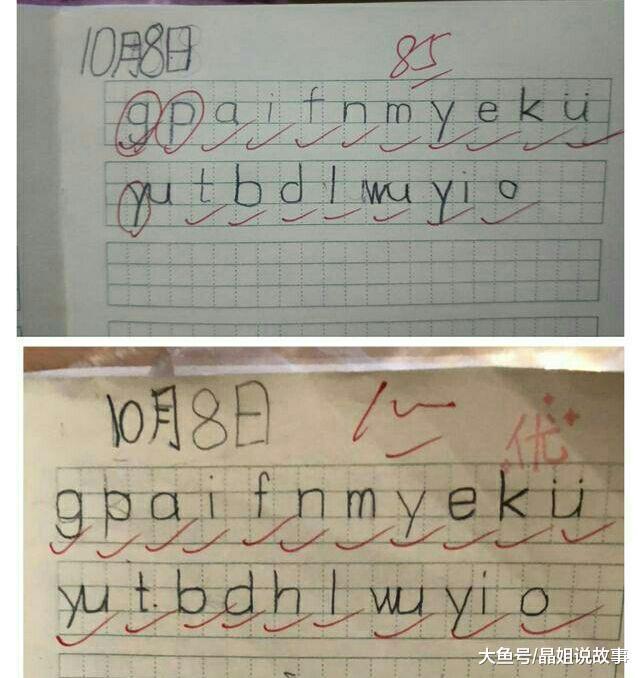 10月8日
85
g p a i f n m y e k ü
yu t b d l wu yi o
10月8日
100
优
g p a i f n m y e k ü
yu t b d h l wu yi o
大鱼号/晶姐说故事